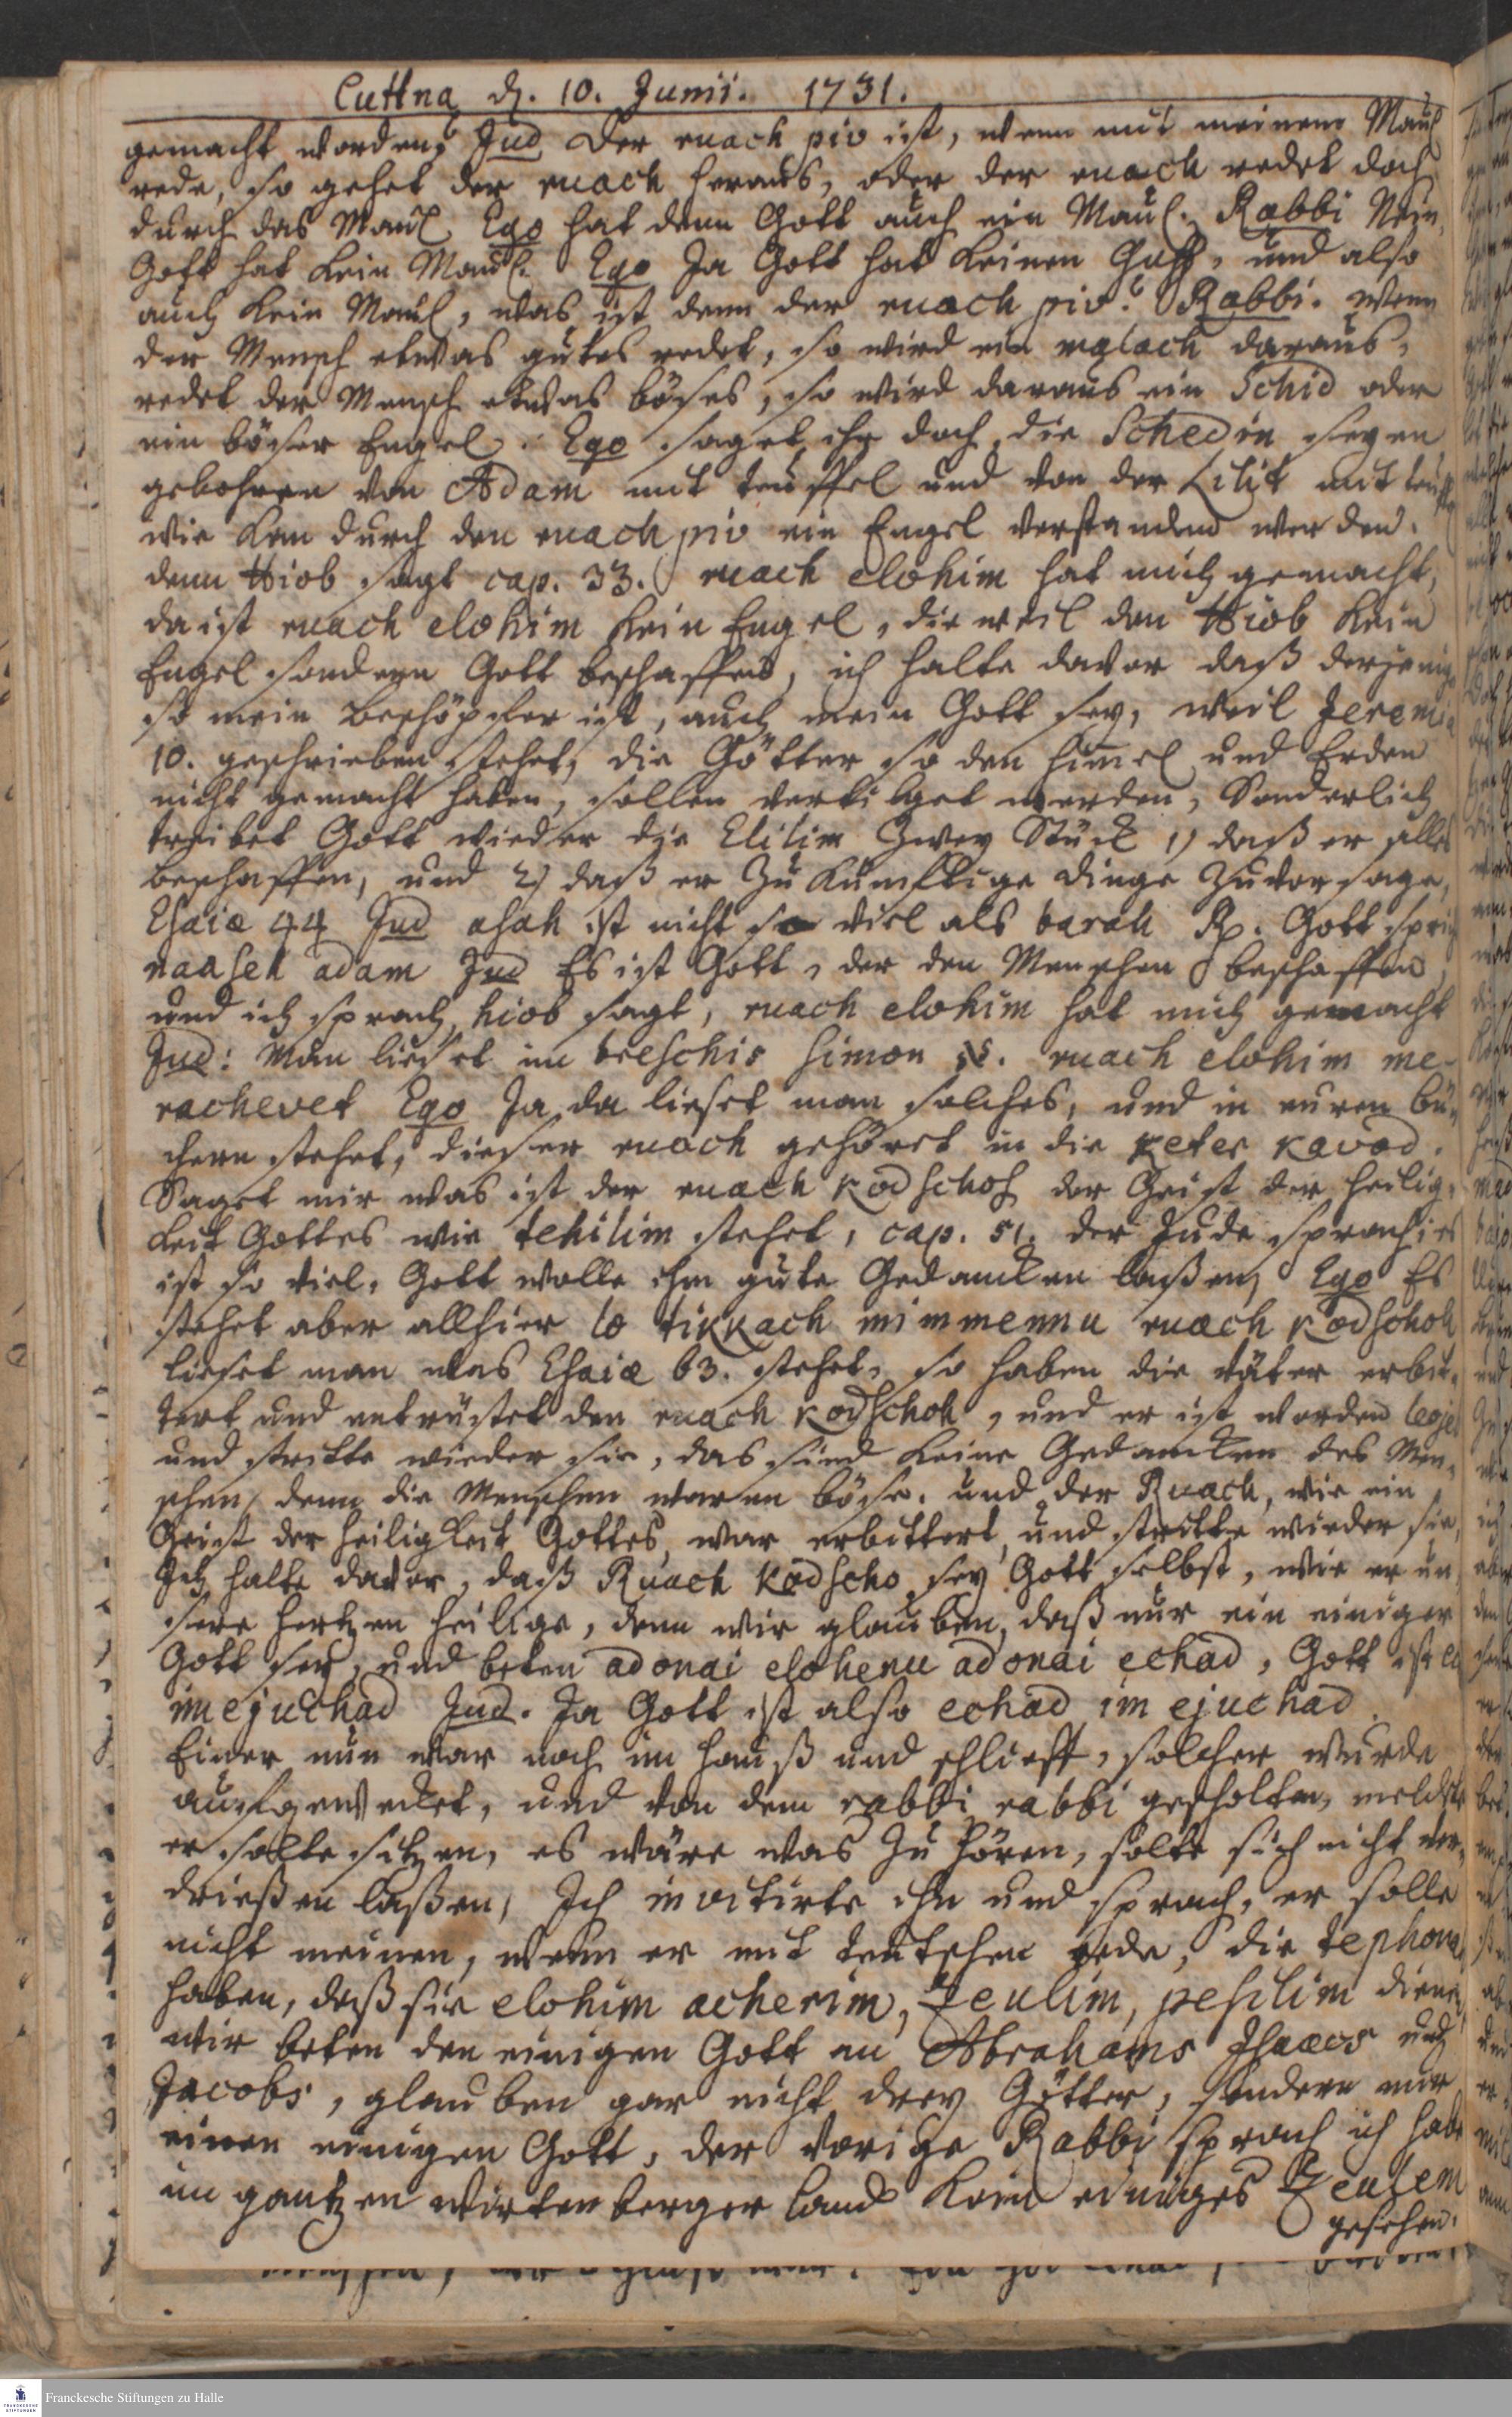 Cuttna d. 10. Junii. 1731.
gemacht worden? Jud der ruach piv ist, wenn mit meinem Maul
rede, so gehet der ruach heraus, oder der ruach redet doch
durch das Maul. Ego hat denn Gott auch ein Maul. Rabbi Nein,
Gott hat kein Maul. Ego Ja Gott hat keinen Guff, und also
auch kein Maul, was ist denn der ruach piv? Rabbi. Wenn
der Mensch etwas gutes redet, so wird ein malach daraus,
redet der Mensch etwas böses, so wird daraus ein Schid oder
ein böser Engel. Ego saget ihr doch, die Schedin seyen
gebohren von Adam mit teuffel und von der Lilit mit
wie kan durch den ruach piv ein Engel verstanden werden.
denn Hiob sagt cap. 33. ruach elohim hat mich gemacht,
da ist ruach elohim kein Engel, dieweil den Hiob kein
Engel sondern Gott beschaffen, ich halte davor daß derjenige
so mein Beschöpffer ist, auch mein Gott sey, weil Jeremia
10. geschrieben stehet, die Götter so den himel und Erden
nicht gemacht haben, sollen vertilget werden, Sonderlich
treibet Gott wieder die Elilim Zwey Stück 1) daß er alles
beschaffen, und 2) daß er Zukünfftige dinge zuvor sage,
Esaiæ 44 Jud asah ist nicht so viel als barah Rx. Gott spricht
naaseh adam Jud Es ist Gott, der den Menschen beschaffen,
und ich sprach, hiob sagt, ruach elohim hat mich gemacht
Jud: Man lieset im breschis Simon א. ruach elohim me-
rachevet Ego Ja, da lieset man solches, und in euren bü-
chern stehet, dieser ruach gehöret in die keter kavod.
Saget mir was ist der ruach kodschoh der Geist der heilig-
keit Gottes wie tehilim stehet, cap. 51. der Jude sprach: es
ist so viel, Gott wolle ihm gute Gedancken laßen, Ego Es
stehet aber allhier lo tikkach mimmennu ruach kodschoh
lieset man was Esaiæ 63. stehet, so haben die väter erbit-
tert und entrüstet den ruach kodschoh, und er ist worden
und stritte wieder sie, das sind keine Gedancken des Men-
schen, denn die Menschen waren böse. und der Ruach, wie ein
Geist der heiligkeit Gottes, war erbittert, und stritte wieder sie,
Ich halte davor, daß Ruach kodscho sey Gott selbst, wie er un-
sere hertzen heilige, denn wir glauben, daß nur ein einiger
Gott sey, und beten adonai elohenu adonai echad, Gott ist
imejuchad Jud. Ja Gott ist also echad imejuchad.
Einer nun war noch im hauß und schlieff, solcher wurde
aufgewecket, und von dem rabbi rabbi gescholten, meldete
er solte sitzen, es wäre was zu hören, solte sich nicht ver-
drießen laßen, Ich invitirte ihn und sprach, er solle
nicht meinen, wenn er mit teutschen rede, die
haben, daß sie elohim acherim, Zeulim, pesilim dienen,
wir beten den einigen Gott an Abrahams Isaacs und
Jacobs, glauben gar nicht drey Götter, sondern nur
einen einigen Gott, der vorige Rabbi sprach ich habe
im gantzen Wirtenberger land kein einiges Zeulem
gesehen.
Franckesche Stiftungen zu Halle